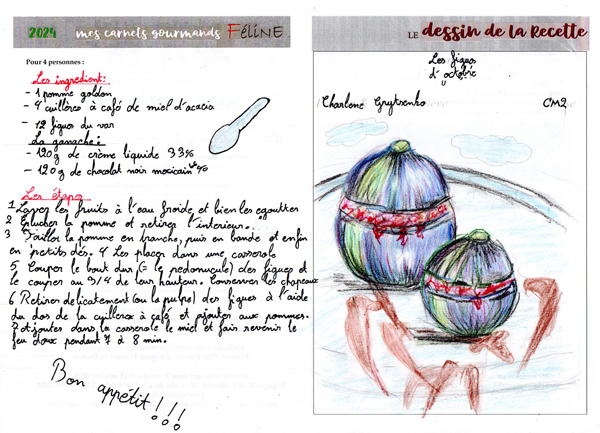 2024 mes carnets gourmands FéliNE
Pour 4 personnes :
Les ingrédient:
- 1 pomme golden
- 4 cuillères à café de miel d'acacia
- 12 figues du var
La ganache:
- 120g de crème liquide 33%
- 120g de chocolat noir mexicain %
Les étapes
1 Laver les fruits à l'eau froide et bien les egoutter
2 Eplucher la pomme et retirer l'interieur.
3 Tailler la pomme en tranche, puis en bande et enfin
en petits dés. 4 Les placer dans une casserole
5 Couper le bout dur (= le pedoncule) des figues et
le couper au 3/4 de leur hauteur. Conserver les chapeaux
6 Retirer delicatement (ou la pulpe) des figues à l'aide
du dos de la cuillere à café et ajouter aux pommes.
7 ajouter dans la casserole le miel et fair revenir le
feu doux pendant 7 à 8 min.
Bon appétit!!!
LE dessin de la Recette
Les figues
d'octobre
Charlene Grytsenko CM2